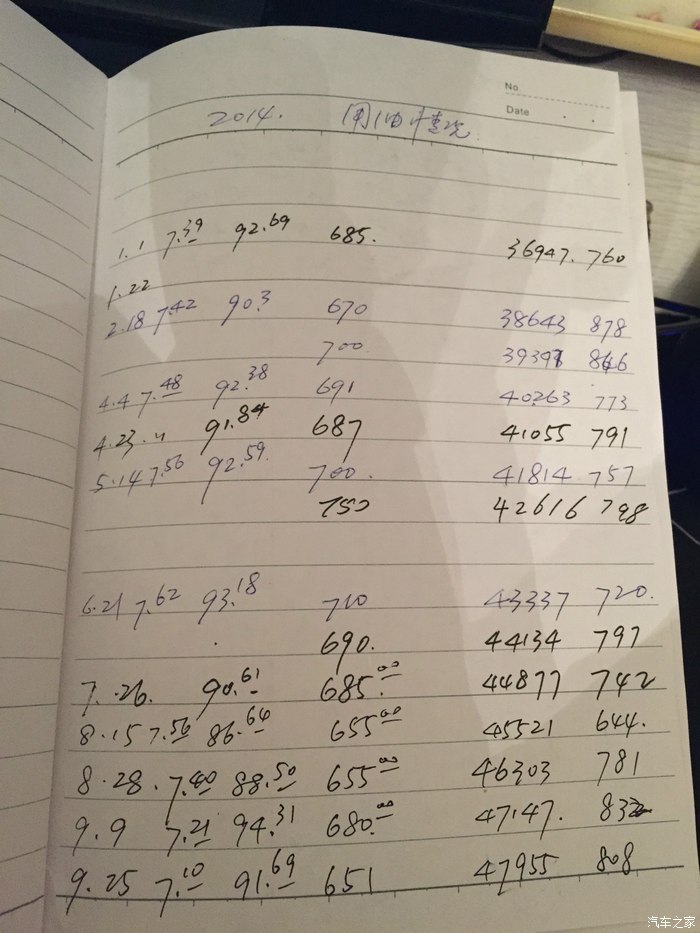 No
Date . .
2014. 用油情况
1.1 7.39 92.69 685. 36947. 760
1.22
2.18 7.42 90.3 670 38643 878
700 866
4.4 7.48 92.38 691 40263 773
4.23. 〃 91.84 687 41055 791
5.14 7.56 92.59. 700. 41814 757
750 42616 798
6.21 7.62 93.18 710 43337 720.
690. 44134 797
7. .26. 90.61 685.00 44877 742
8.15 7.56 86.64 655 00 45521 644.
8.28. 7.40 88.50 655 00 46303 781
9.9 7.21 94.31 680.00 47147. 832
9.25 7.10 91.69 651 47955 808
汽车之家